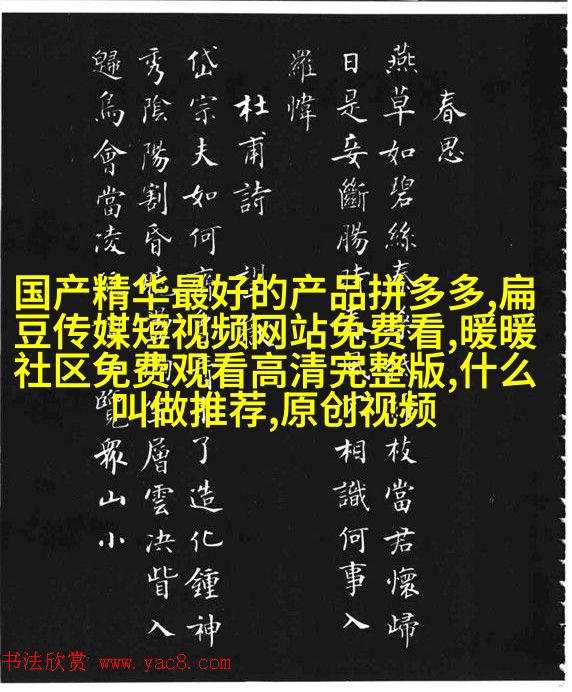 春思
燕草如碧絲秦枝當君懷歸
日是妾斷腸時相識何事入
羅幃
杜甫詩
岱宗夫如何了造化鍾神
秀陰陽割昏曉層雲決眥入
歸鳥會當凌覽眾山小
国产精华最好的产品拼多多,扁
豆传媒短视频网站免费看,暖暖
社区免费观看高清完整版,什么
叫做推荐,原创视频
书法欣赏 www.yac8.com